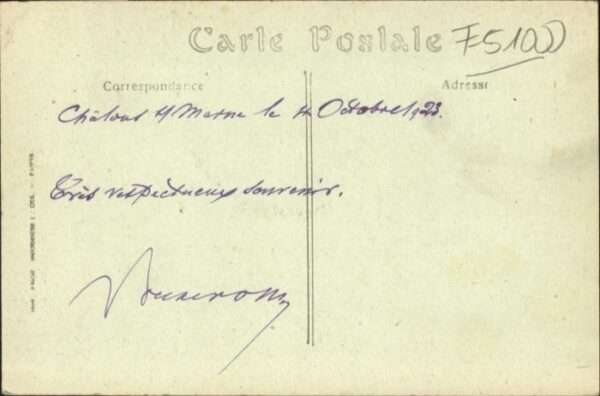 Carte Postale
F5100
Correspondance
Adresse
Châlons s/ Marne le 4 Octobre 1923.
Très respectueux souvenir.